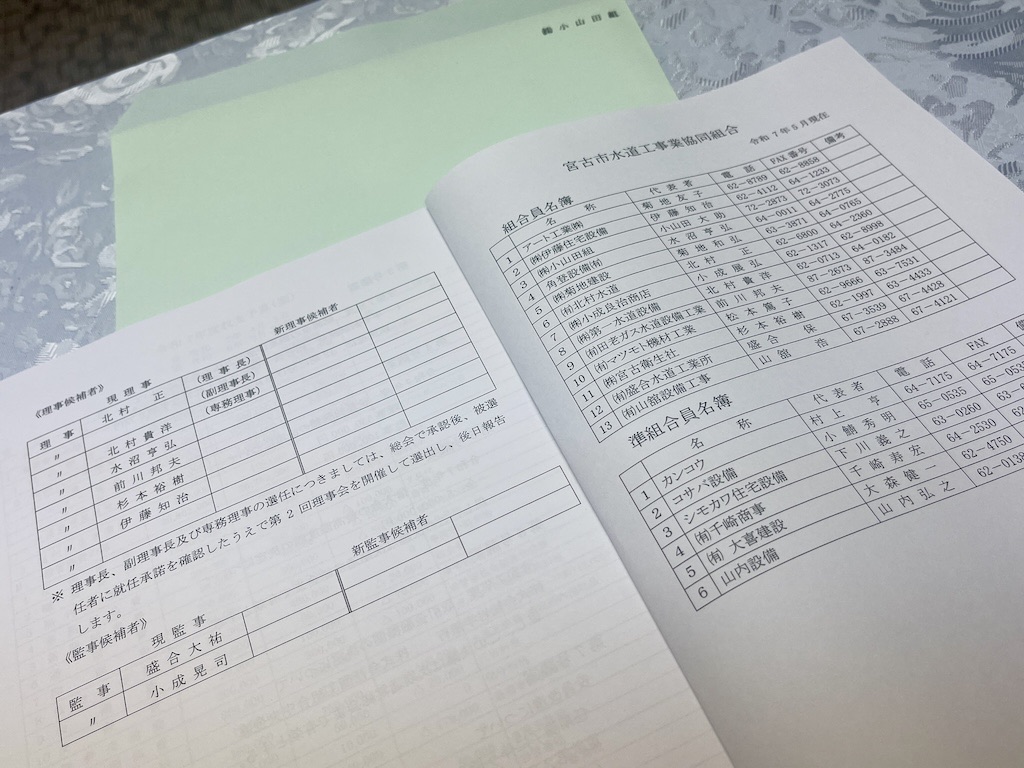 ㈱小山田組
《理事候補者》
現理事 新理事候補者
理事 北村 正 (理事長)
〃 北村貴洋 (副理事長)
〃 水沼亨弘 (専務理事)
〃 前川邦夫
〃 杉本裕樹
〃 伊藤知治
〃
※ 理事長、副理事長及び専務理事の選任につきましては、総会で承認後、被選
任者に就任承諾を確認したうえで第2回理事会を開催して選出し、後日報告
します。
《監事候補者》
現監事 新監事候補者
監事 盛合大祐
〃 小成晃司
宮古市水道工事業協同組合
令和7年5月現在
組合員名簿
名称 代表者 電話 FAX番号 備考
1 アート工業㈱ 菊地友子 62-8789 62-8858
2 ㈱伊藤住宅設備 伊藤知治 62-4112 64-1233
3 ㈱小山田組 小山田大助 72-2873 72-3073
4 角登設備㈲ 水沼亨弘 64-0011 64-2775
5 ㈱菊地建設 菊地和弘 63-3871 64-0765
6 ㈲北村水道 北村 正 62-6800 64-2360
7 ㈱小成良治商店 小成風弘 62-1317 62-8998
8 ㈱第一水道設備 北村貴洋 62-0713 64-0182
9 ㈲田老ガス水道設備工業 前川邦夫 87-2673 87-3484
10 ㈲マツモト機材工業 松本 62-9666 63-7531
11 ㈱宮古衛生社 杉本裕樹 62-1997 63-4433
12 ㈲盛合水道工業所 盛合 保 67-3539 67-4428
13 ㈲山舘設備工事 山舘 浩 67-2888 67-4121
準組合員名簿
名称 代表者 電話 FAX 備
1 カンコウ 村上 亨 64-7175 64-7175
2 コサバ設備 小鯖秀明 65-0535
3 シモカワ住宅設備 下川義之 63-0260
4 ㈲千崎商事 千崎寿宏 64-2530
5 ㈲大喜建設 大森健一 62-4750
6 山内設備 山内弘之